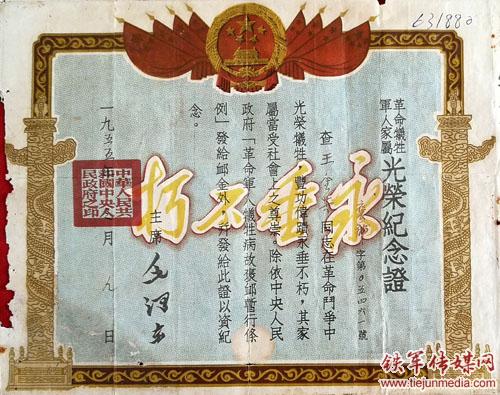 631880
革命犧牲
軍人家屬
光榮紀念證
字第0五四六一號
查王 同志在革命鬥爭中
光榮犧牲，豐功偉蹟永垂不朽，其家
屬當受社會上之尊崇。除依中央人民
政府「革命軍人犧牲病故褒卹暫行條
例」發給卹金外，并發給此證以資紀
念。
主席 毛澤東
一九五五年 月九日
中華人民共
和國中央人
民政府之印
永垂不朽
铁军传媒网
www.tiejunmedia.com